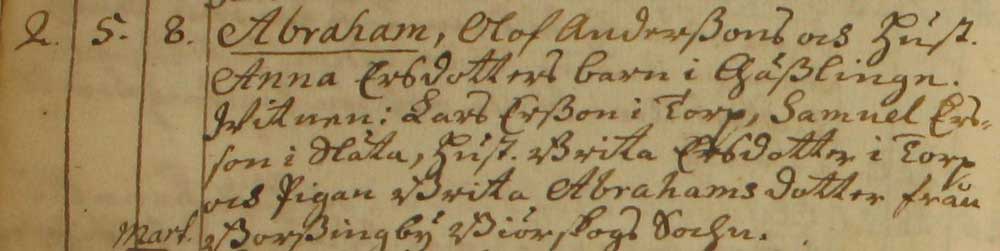 2. 5. 8. Abraham, Olof Anderßons och Hust.
Anna Ersdotters barn i Gäßlinge.
Witnen: Lars Erßon i Torp, Samuel Ers-
son i Släta, Hust. Brita Ersdotter i Torp
och Pigan Brita Abrahams dotter från
Mart. Borßingby Biörskogs Sochn.